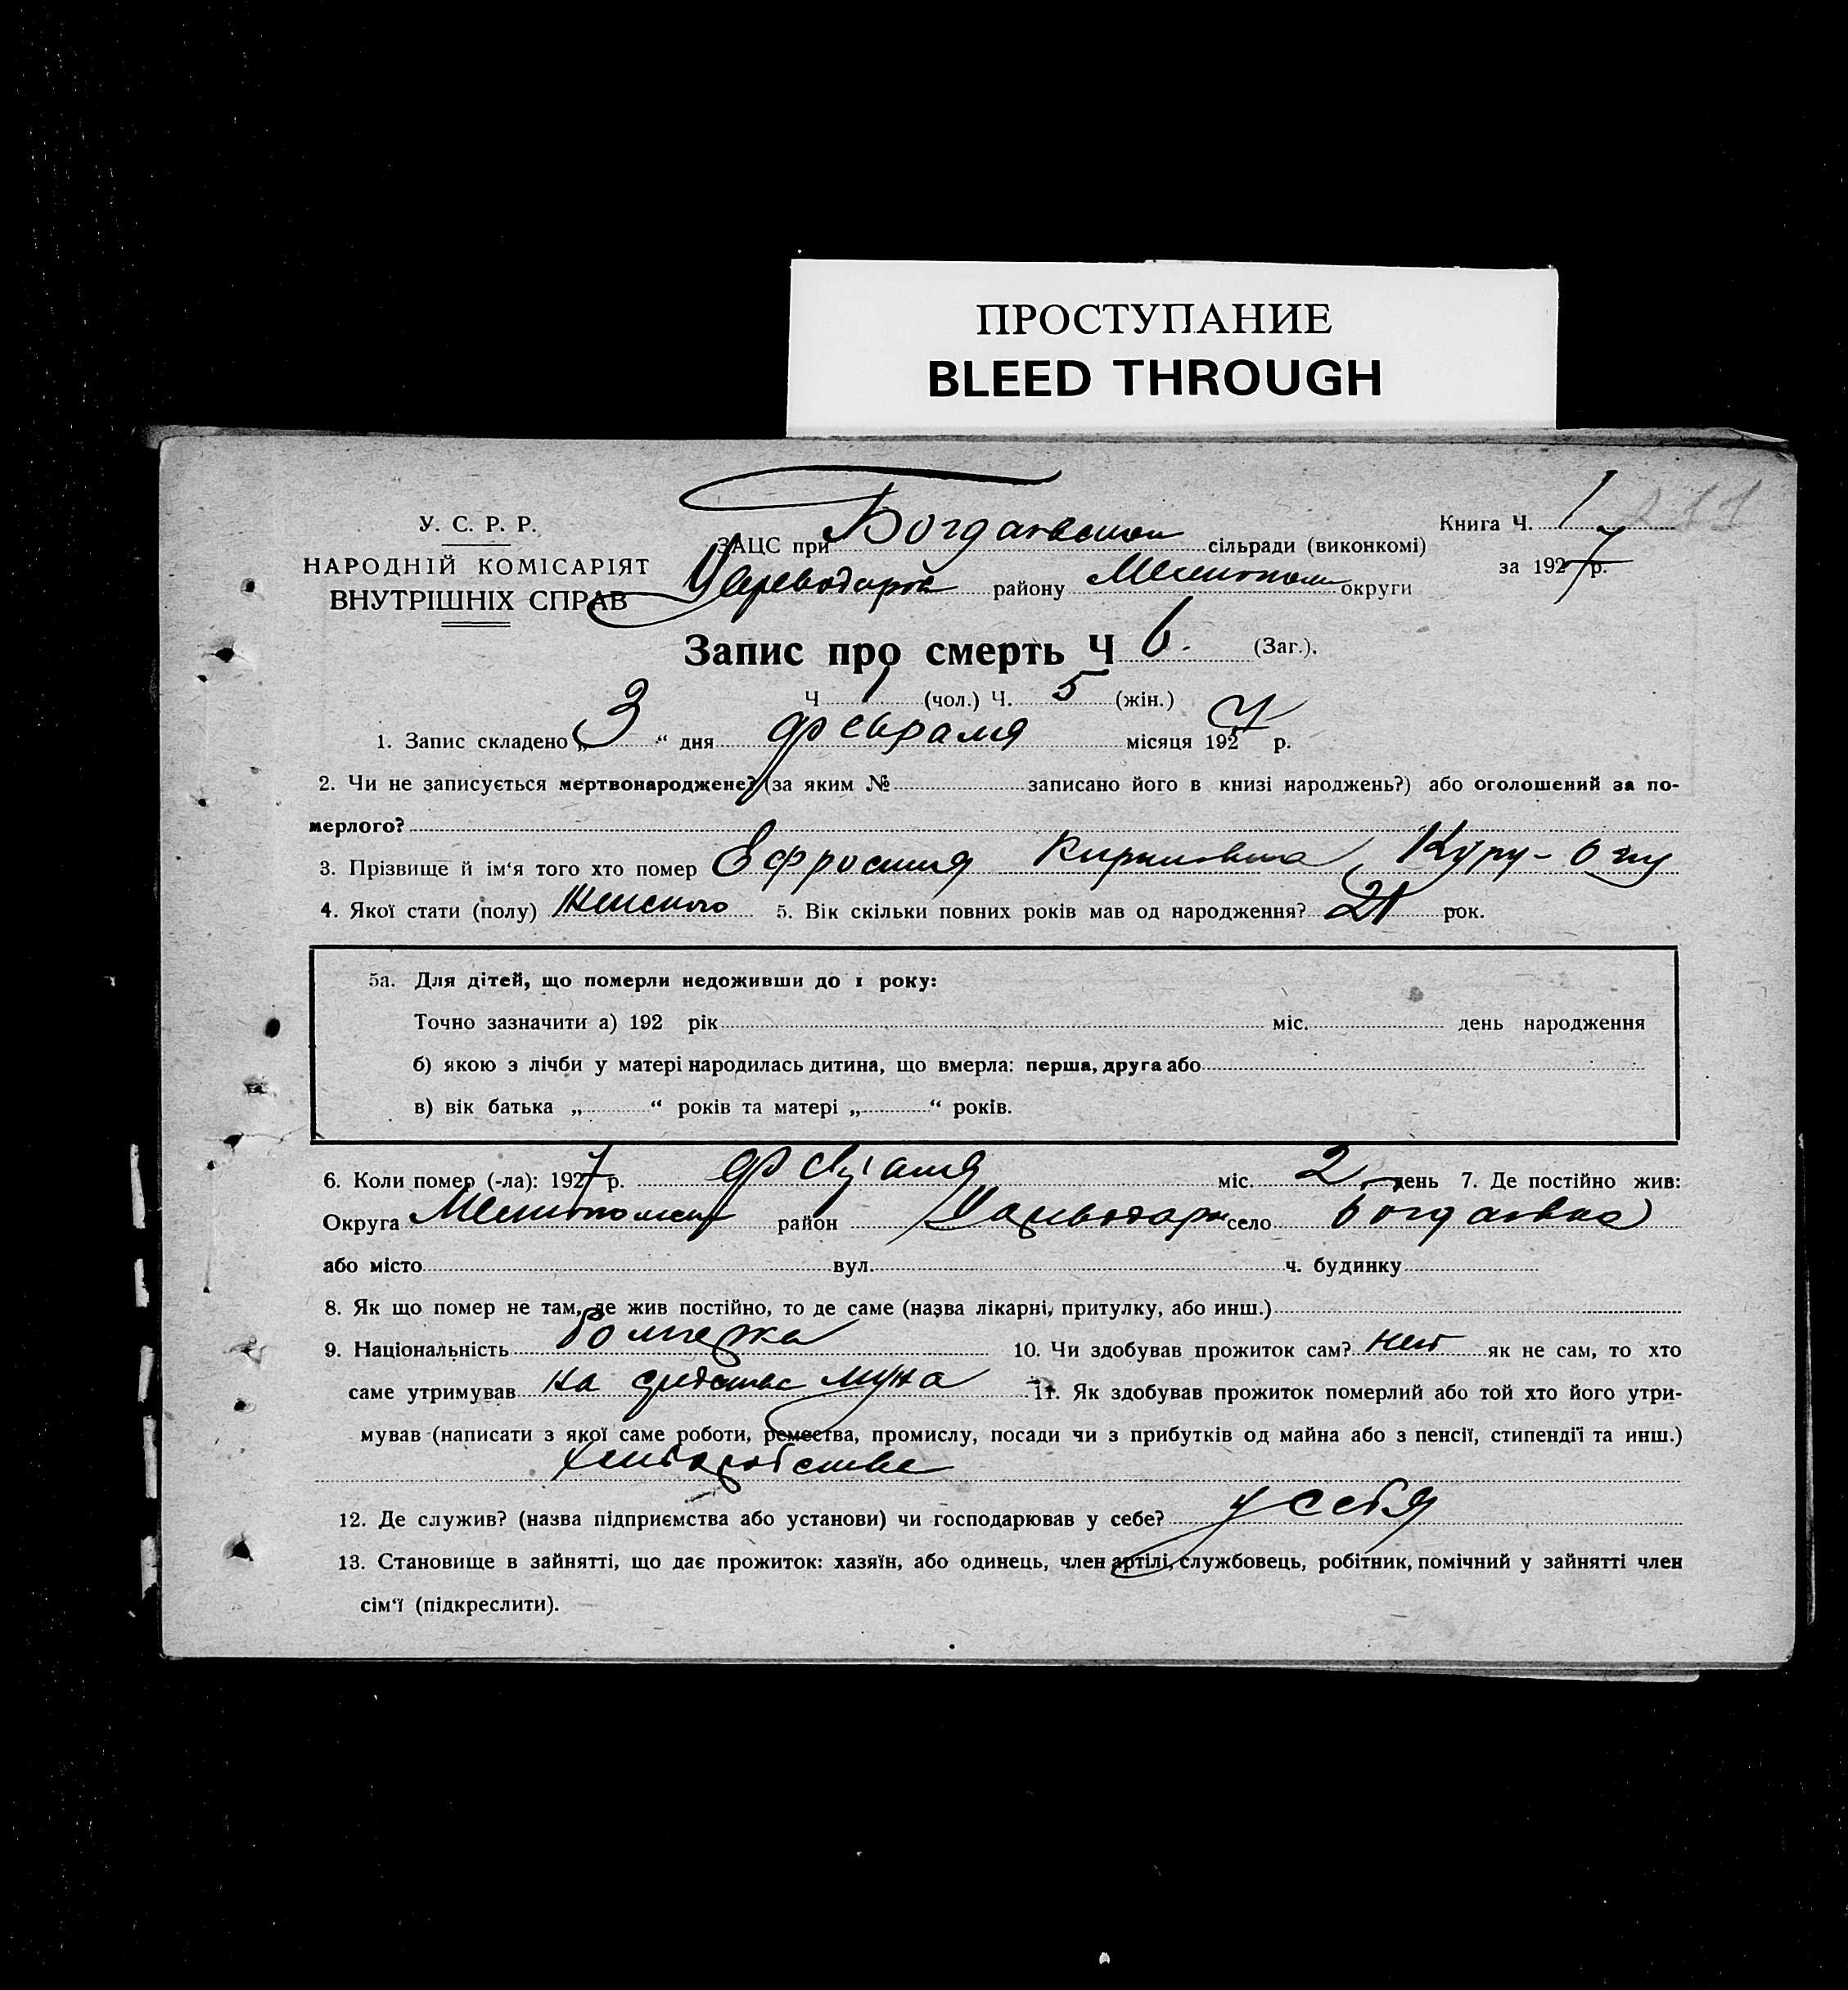 ПРОСТУПАНИЕ
BLEED THROUGH
У. С. Р. Р.
НАРОДНІЙ КОМІСАРІЯТ
ВНУТРІШНІХ СПРАВ
ЗАЦС при Богдановском сільради (виконкомі)
району Мелитопол округи
Книга Ч. 1
211
за 1927 р.
Запис про смерть Ч 6. (Заг.).
Ч 1 (чол.) Ч. 5 (жін.)
1. Запис складено „ 3 “ дня февраля місяця 1927 р.
2. Чи не записується мертвонароджене? (за яким № записано його в книзі народжень?) або оголошений за по-
мерлого?
3. Прізвище й ім‘я того хто помер Ефросиния Кирилловна, Куру-оглу
4. Якої стати (полу) Женского 5. Вік скільки повних років мав од народження? 21 рок.
5а. Для дітей, що померли недоживши до 1 року:
Точно зазначити а) 192 рік міс. день народження
б) якою з лічби у матері народилась дитина, що вмерла: перша, друга або
в) вік батька „ “ років та матері „ “ років.
6. Коли помер (-ла): 1927 р. февраля міс. 2 день 7. Де постійно жив:
Округа Мелитопольск район село Богдановка
або місто вул. ч. будинку
8. Як що помер не там, де жив постійно, то де саме (назва лікарні, притулку, або инш.)
9. Національність Болгарка 10. Чи здобував прожиток сам? нет як не сам, то хто
саме утримував на средства мужа 11. Як здобував прожиток померлий або той хто його утри-
мував (написати з якої саме роботи, ремества, промислу, посади чи з прибутків од майна або з пенсії, стипендії та инш.)
хлебопашество
12. Де служив? (назва підприємства або установи) чи господарював у себе? у себя
13. Становище в зайнятті, що дає прожиток: хазяїн, або одинець, член артілі, службовець, робітник, помічний у зайнятті член
сім‘ї (підкреслити).